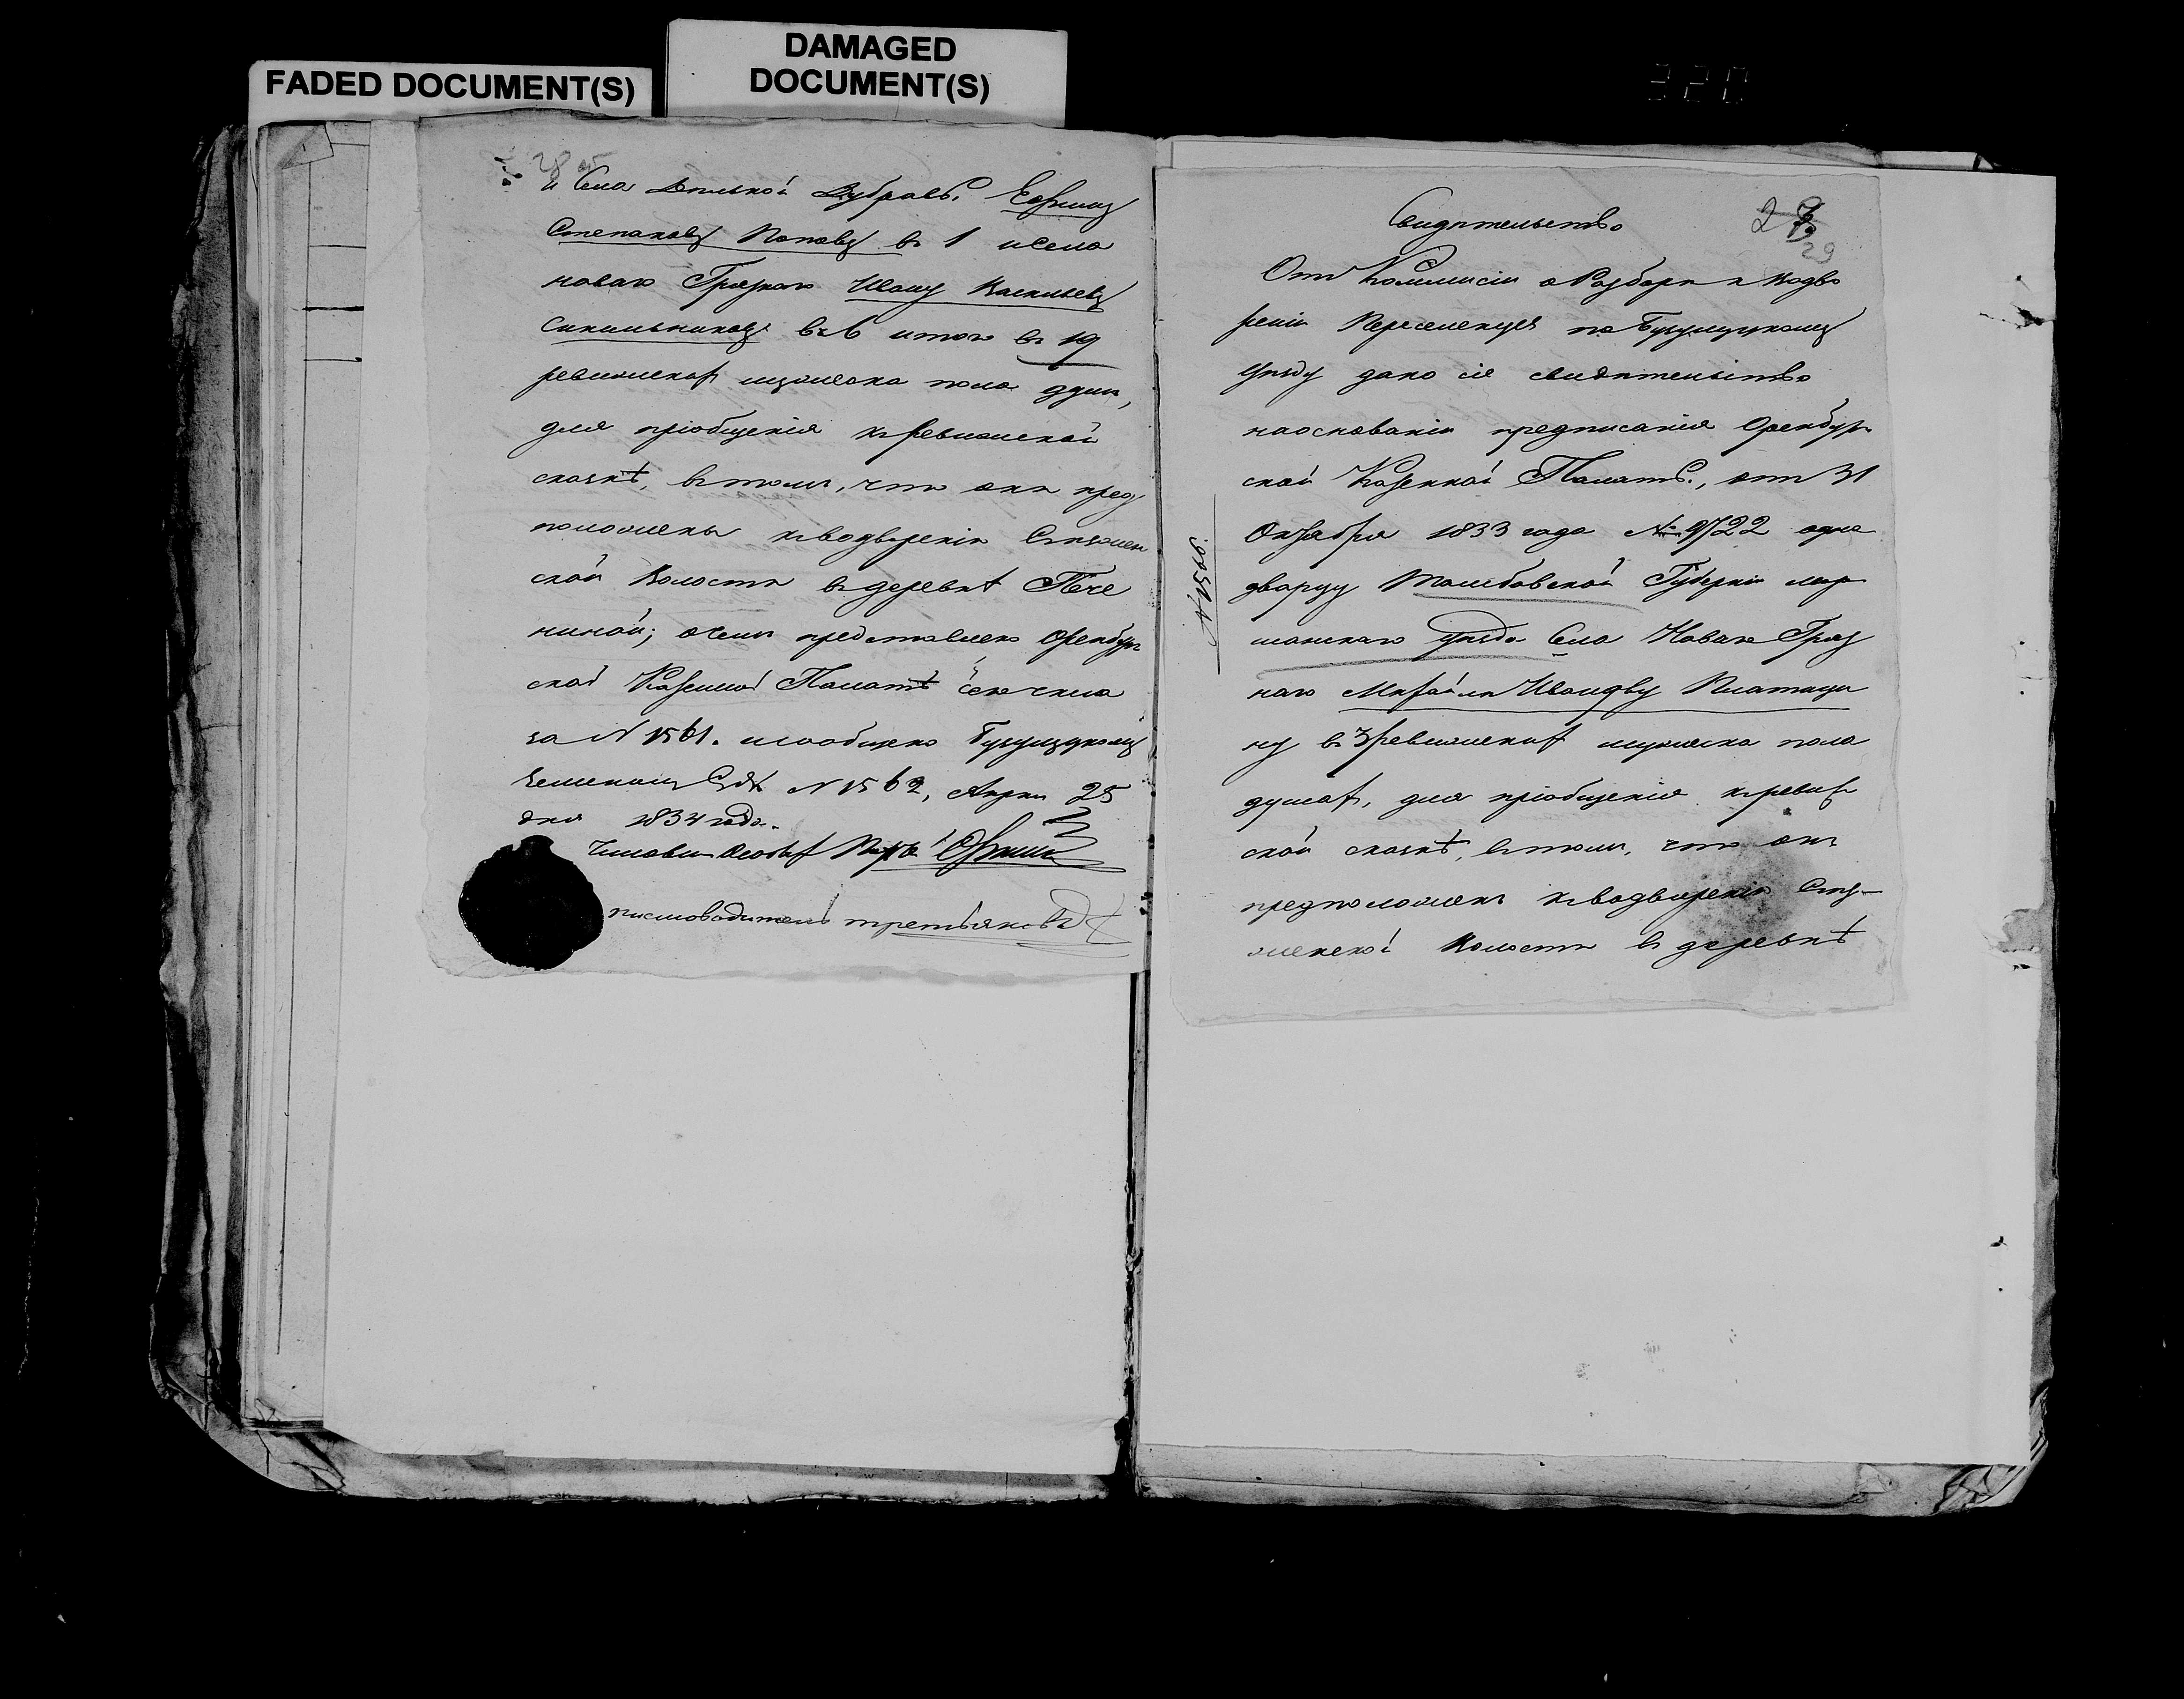 FADED DOCUMENT(S)
DAMAGED
DOCUMENT(S)
320
28 об
и Села Вольной Дубравы, Ефиму
Степанову Попову въ 1 и Села
новаго Грязнаго Ивану Васильеву
въ 6 итого въ 19
ревижскихъ мужеска пола душ,
для пріобщенія къ ревижской
сказкѣ, въ томъ, что они пред
положены къ водворенію Стъжен
ской Волости въ деревнѣ Пече
ниной; о чемъ представлено Оренбург
ской Казенной Палатѣ сего числа
за N 1561. и сообщено Бузулуцкому
Земскому Суду N 1562, Апрѣля 25
дня 1834 года.
Чиновн. Особыхъ Поруч.
писмоводитель третьяковъ
Свидѣтельство
29
Отъ Коммисіи о Разборѣ и Водво
реніи Переселенцевъ по Бузулуцкому
уѣзду дано сіе свидѣтельство
на основаніи предписанія Оренбург
ской Казенной Палаты, отъ 31
Октября 1833 года № 9722 одно
дворцу Тамбовской Губерніи мор
шанскаго уѣзда Села Новаго Гряз
наго Михайлѣ Иванову Платицы
ну въ 3 ревижскихъ мужеска пола
душахъ, для пріобщенія къ ревиж
ской сказкѣ, въ томъ, что онъ
предположенъ къ водворенію Стъ
женской Волости въ деревнѣ